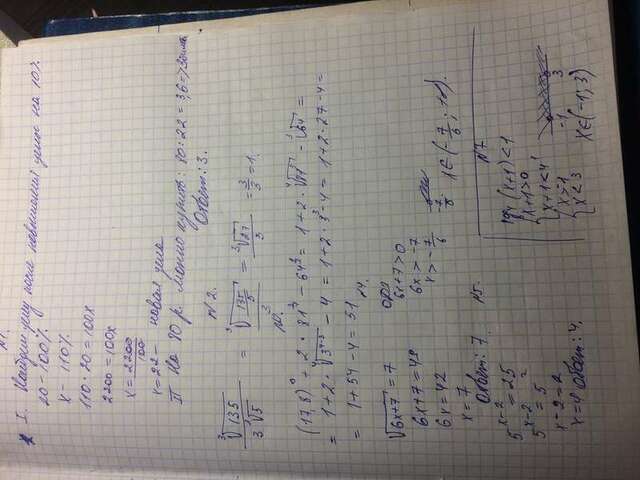 N1.
I. Найдем цену после повышения цены на 10%.
20 – 100%
x – 110%
110 · 20 = 100x
2200 = 100x
x = 2200/100
x = 22 – новая цена
II На 80 р. можно купить: 80:22 = 3,6 => 3
Ответ: 3.
N2.
∛135 / 3∛5 = ∛(135/5) / 3 = ∛27 / 3 = 3/3 = 1.
N3.
(17,8)⁰ + 2 · 81^(3/4) – 64^(2/3) = 1+2 · ⁴√81³ – ³√64 =
= 1+2 · ⁴√3^(4·3) – 4 = 1+2 · 3³ – 4 = 1+2 · 27 – 4 =
= 1+54 – 4 = 51
N4.
√6x+7 = 7
6x+7 = 49
6x = 42
x = 7
Ответ: 7
ОДЗ
6x+7 > 0
6x > –7
x > –7/6
–7/6
x ∈ (–7/6; +∞).
N5.
5^(x–2) = 25
5^(x–2) = 5²
x – 2 = 2
x = 4 Ответ: 4.
N7
log₄ (x+1) < 1
{x+1 > 0
x+1 < 4¹
{x > -1
x < 3
-1 3
x ∈ (-1; 3)